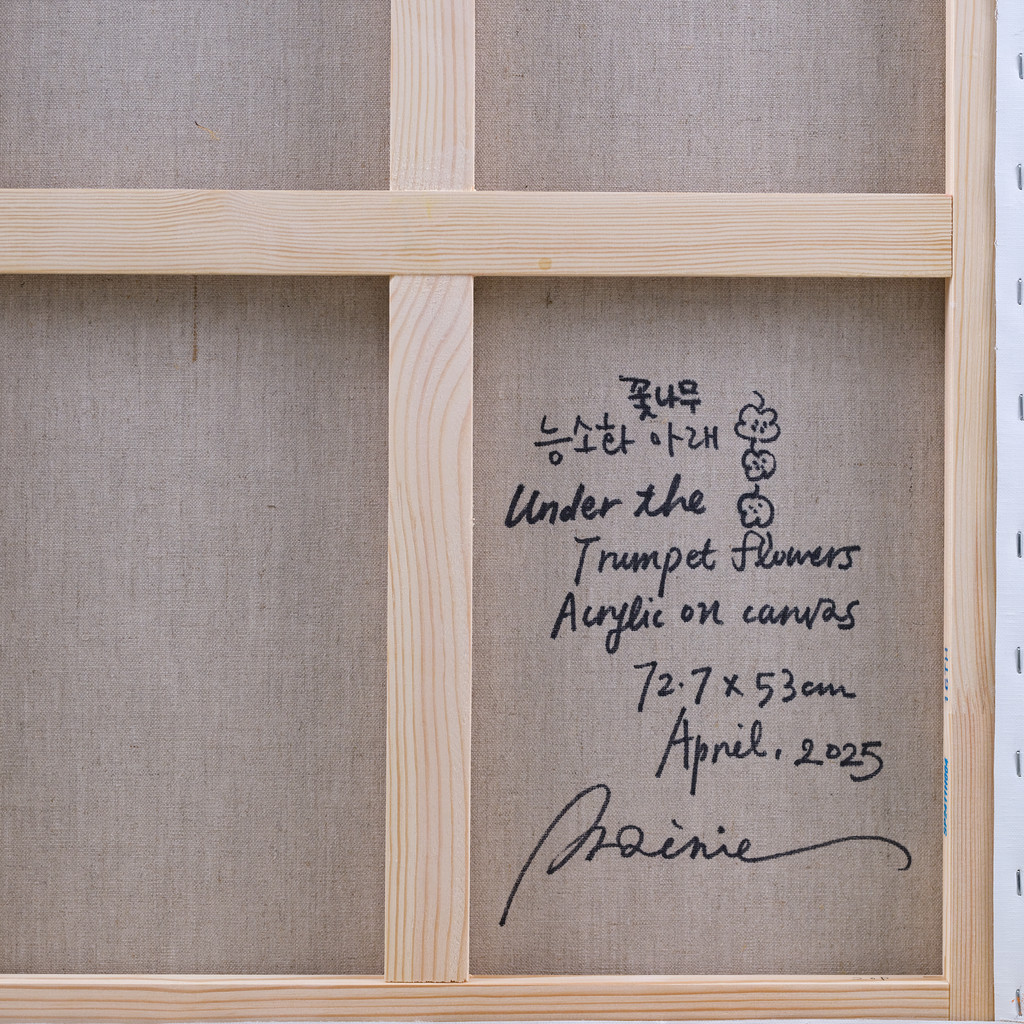 꽃나무
능소화 아래
Under the
Trumpet flowers
Acrylic on canvas
72.7 x 53cm
April. 2025